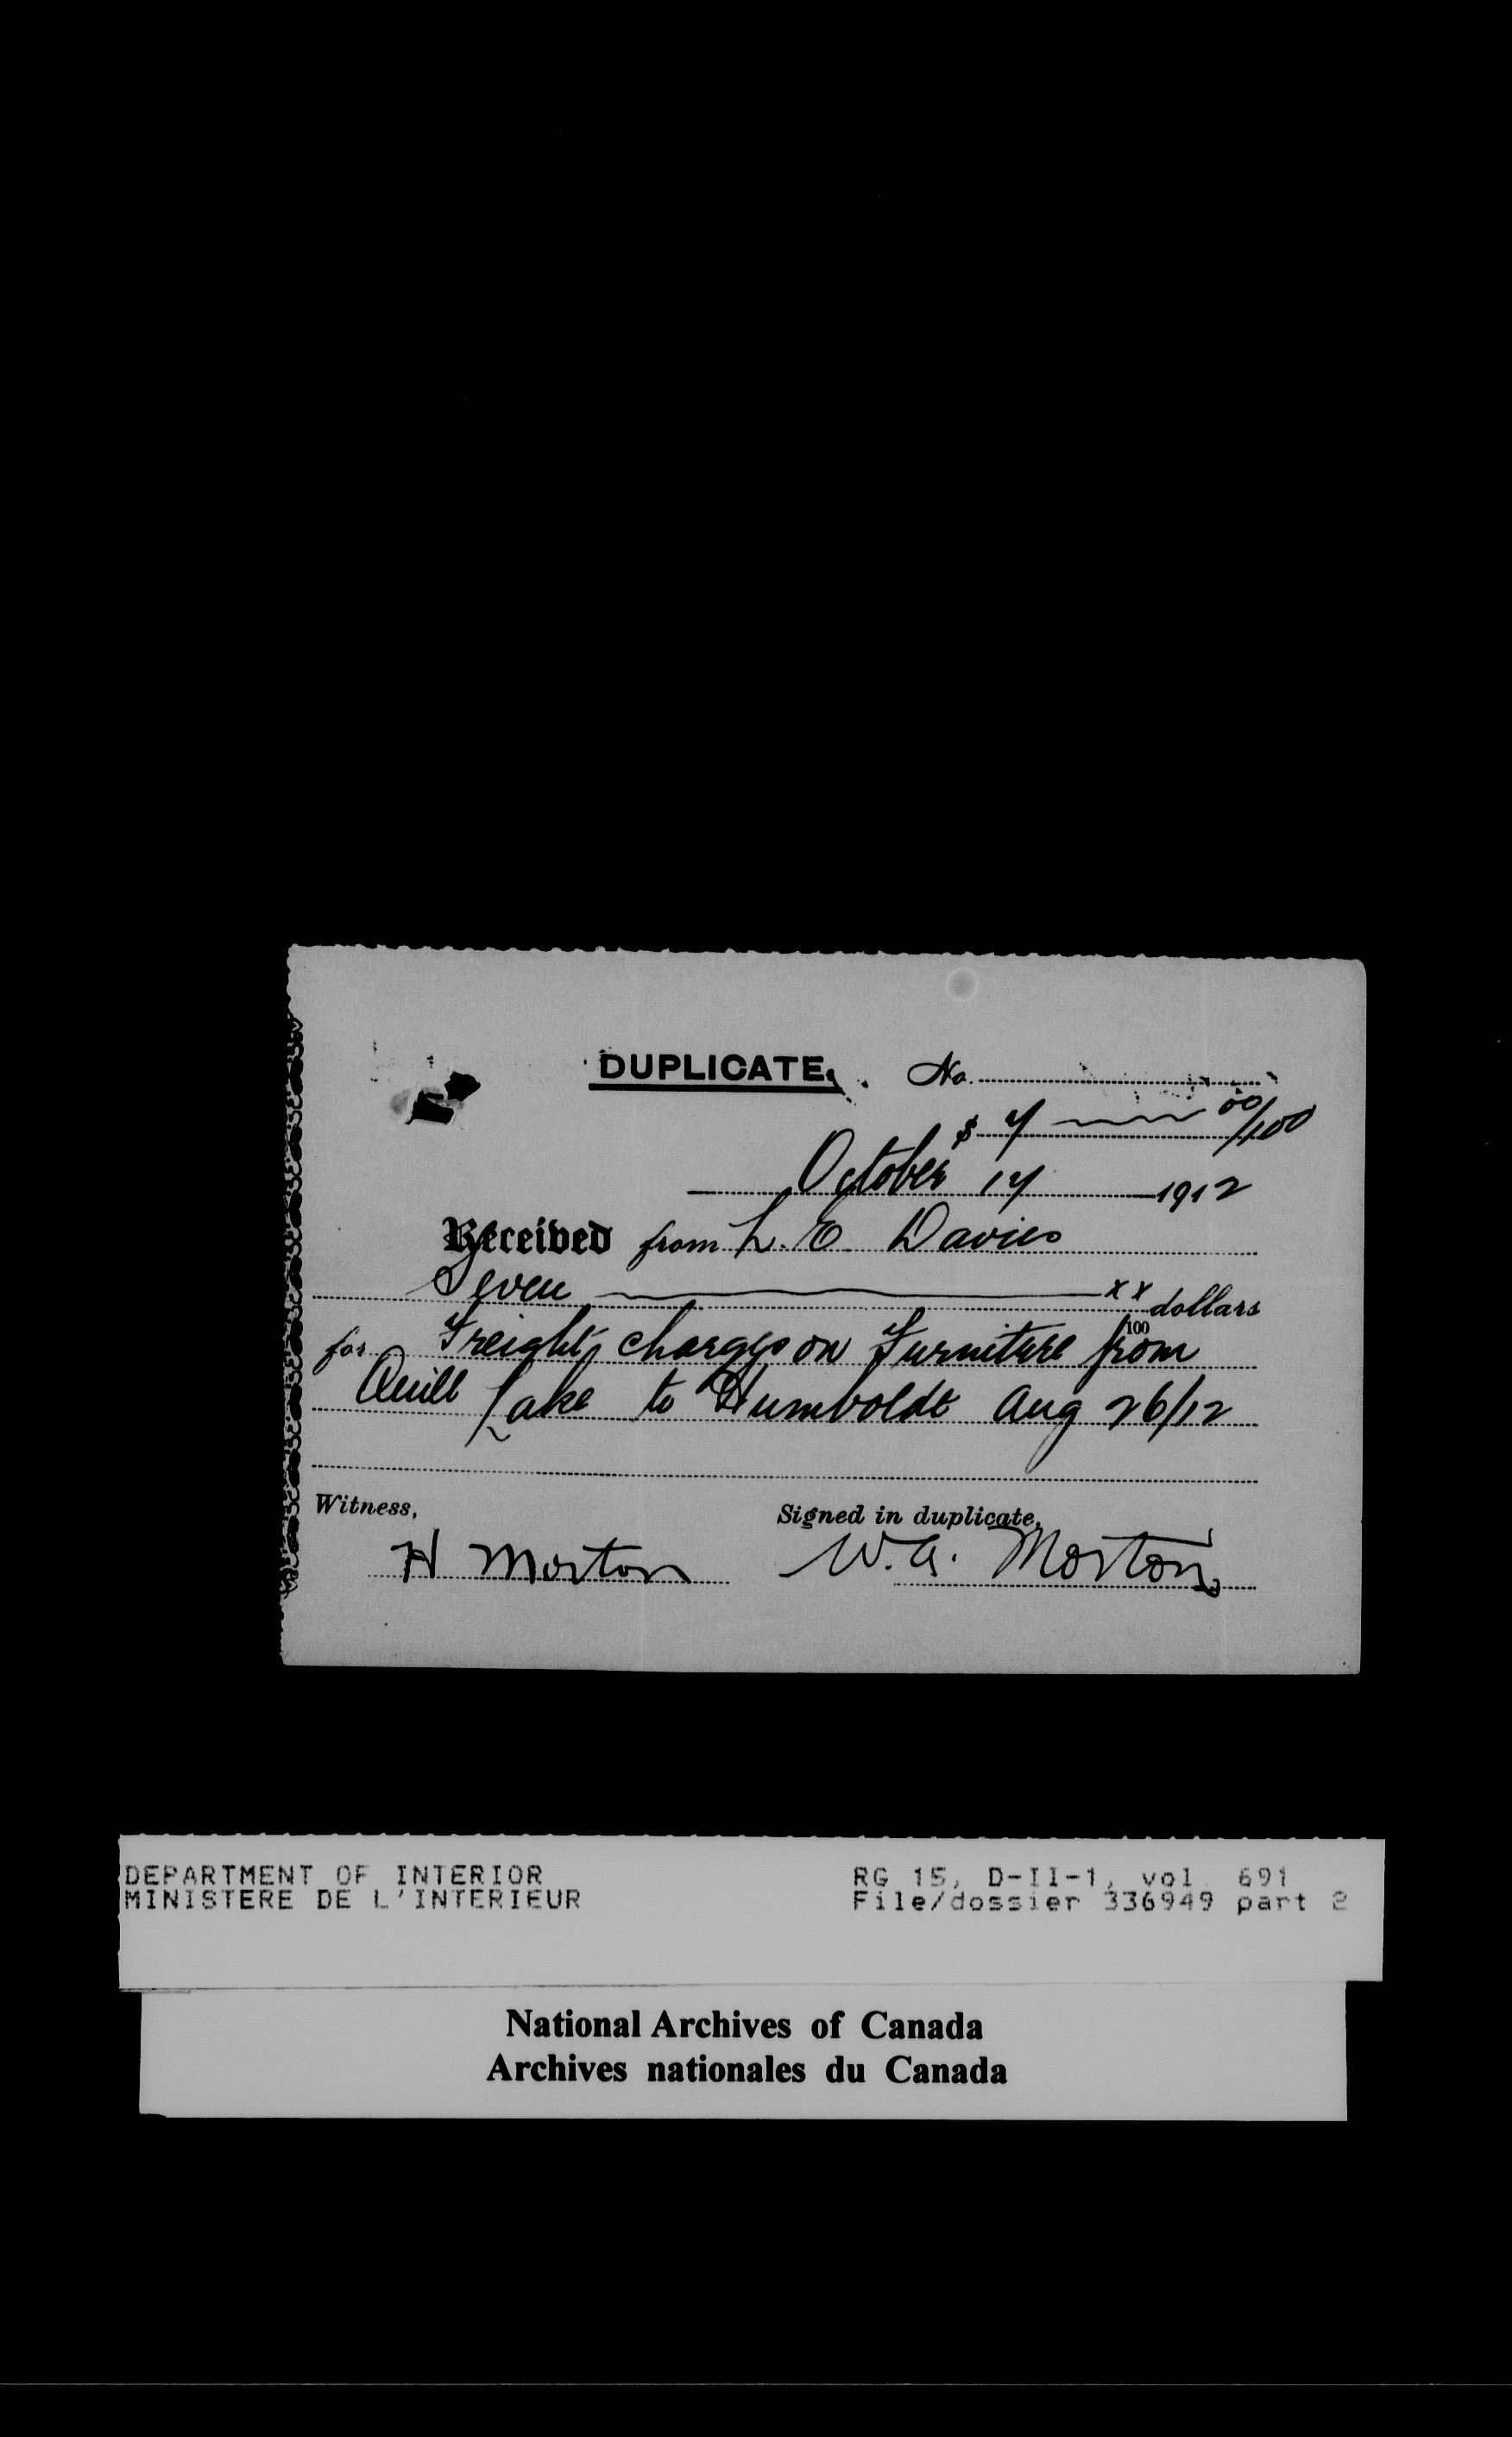 DUPLICATE. No.
$ 7 00/100
October 17 1912
Received from L. E. Davies
Seven xx/100 dollars
for Freight charges on Furniture from
Quill Lake to Humboldt Aug 26/12
Witness, Signed in duplicate,
H Morton W. A. Morton
DEPARTMENT OF INTERIOR RG 15, D-II-1, vol. 691
MINISTERE DE L'INTERIEUR File/dossier 336949 part 2
National Archives of Canada
Archives nationales du Canada